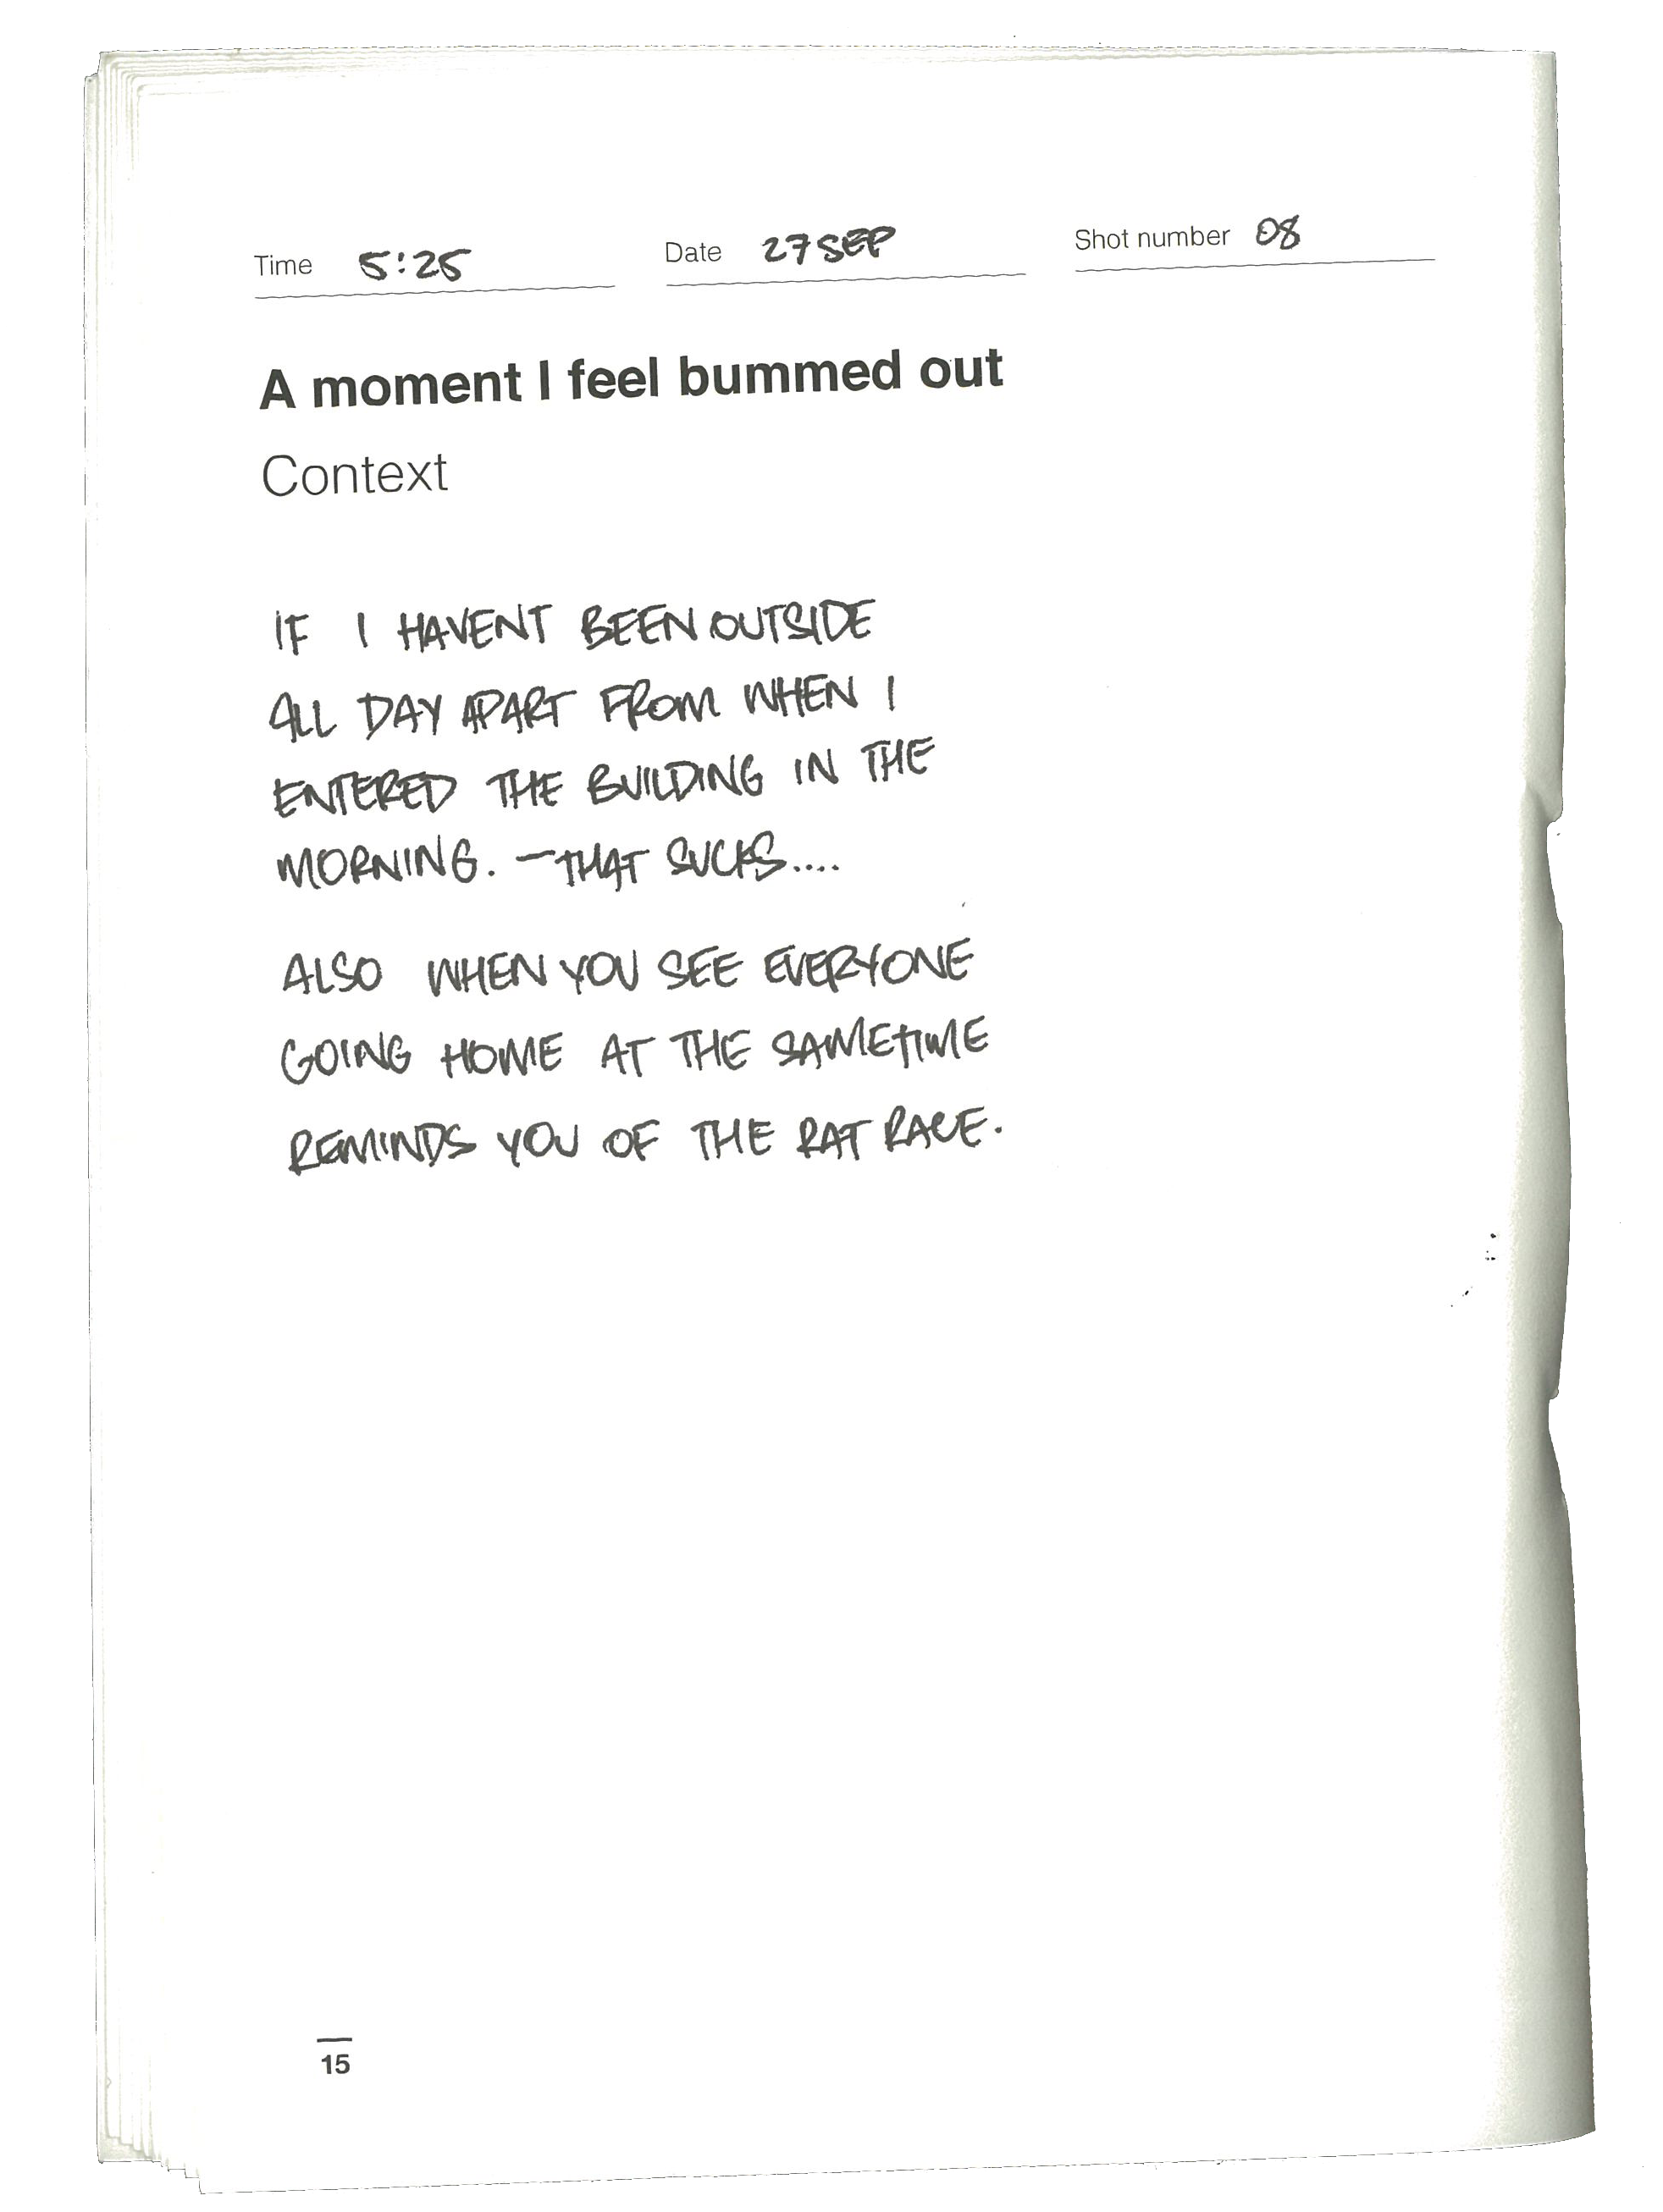 Time 5:25 Date 27 SEP Shot number 08
A moment I feel bummed out
Context
IF I HAVENT BEEN OUTSIDE
ALL DAY APART FROM WHEN I
ENTERED THE BUILDING IN THE
MORNING. - THAT SUCKS....
ALSO WHEN YOU SEE EVERYONE
GOING HOME AT THE SAMETIME
REMINDS YOU OF THE RAT RACE.
15